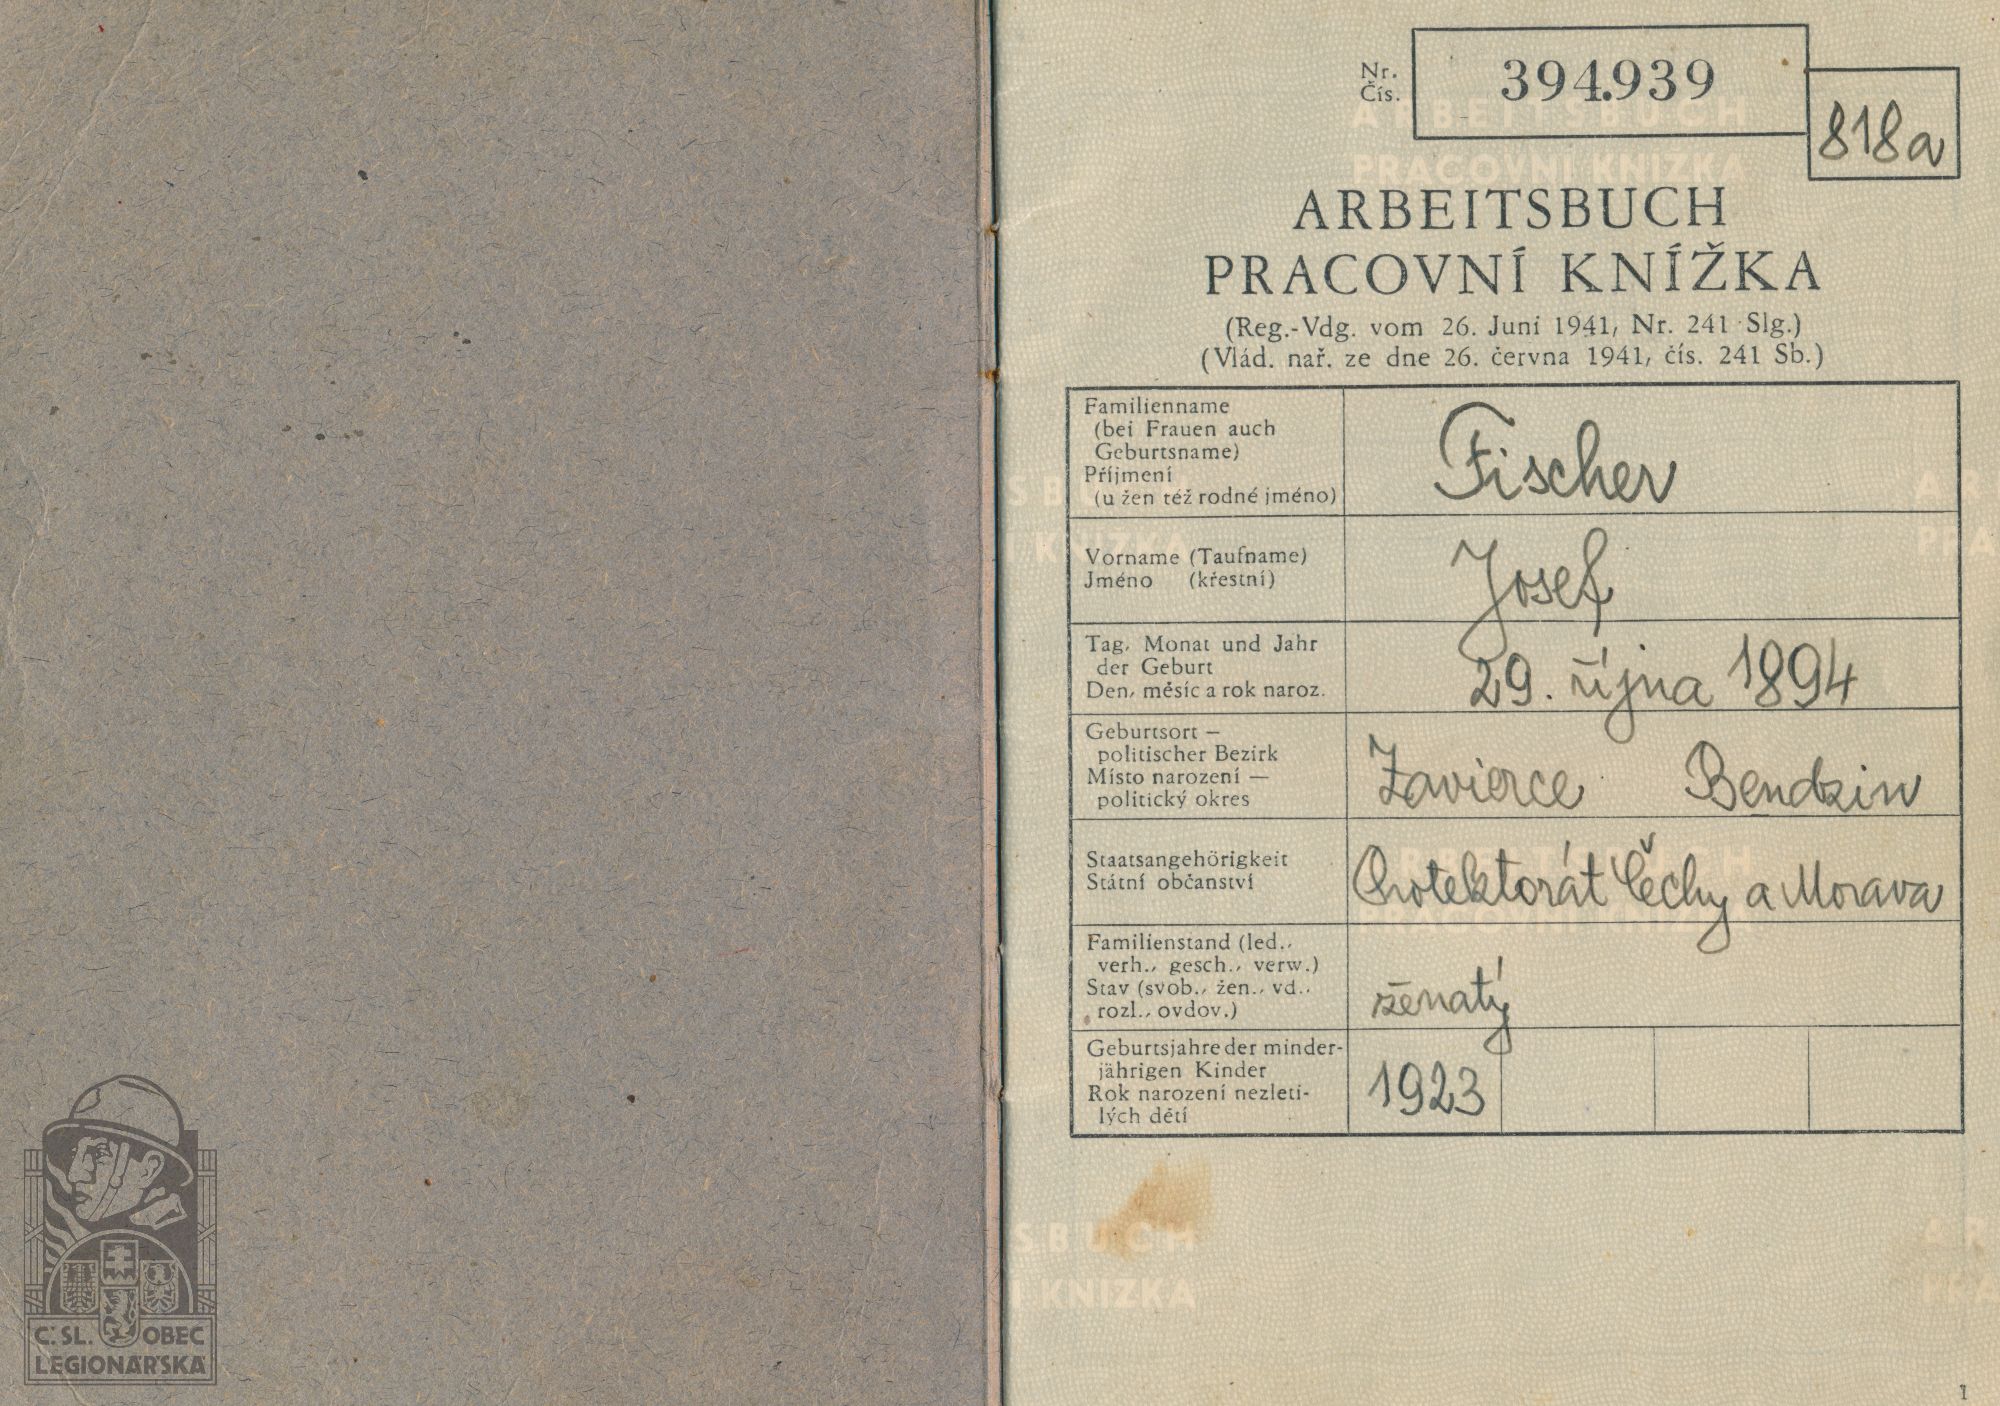 Nr.
Čís.
394.939
818a
ARBEITSBUCH
PRACOVNÍ KNÍŽKA
(Reg.-Vdg. vom 26. Juni 1941, Nr. 241 Slg.)
(Vlád. nař. ze dne 26. června 1941, čís. 241 Sb.)
Familienname
(bei Frauen auch
Geburtsname)
Příjmení
(u žen též rodné jméno)
Fischer
Vorname (Taufname)
Jméno (křestní)
Josef
Tag, Monat und Jahr
der Geburt
Den, měsíc a rok naroz.
29. října 1894
Geburtsort –
politischer Bezirk
Místo narození —
politický okres
Zavierce Bendzin
Staatsangehörigkeit
Státní občanství
Protektorát Čechy a Morava
Familienstand (led.,
verh., gesch., verw.)
Stav (svob., žen., vd.,
rozl., ovdov.)
ženatý
Geburtsjahre der minder-
jährigen Kinder
Rok narození nezleti-
lých dětí
1923
1
ARBEITSBUCH
PRACOVNÍ KNÍŽKA
Č.SL. OBEC
LEGIONÁŘSKÁ